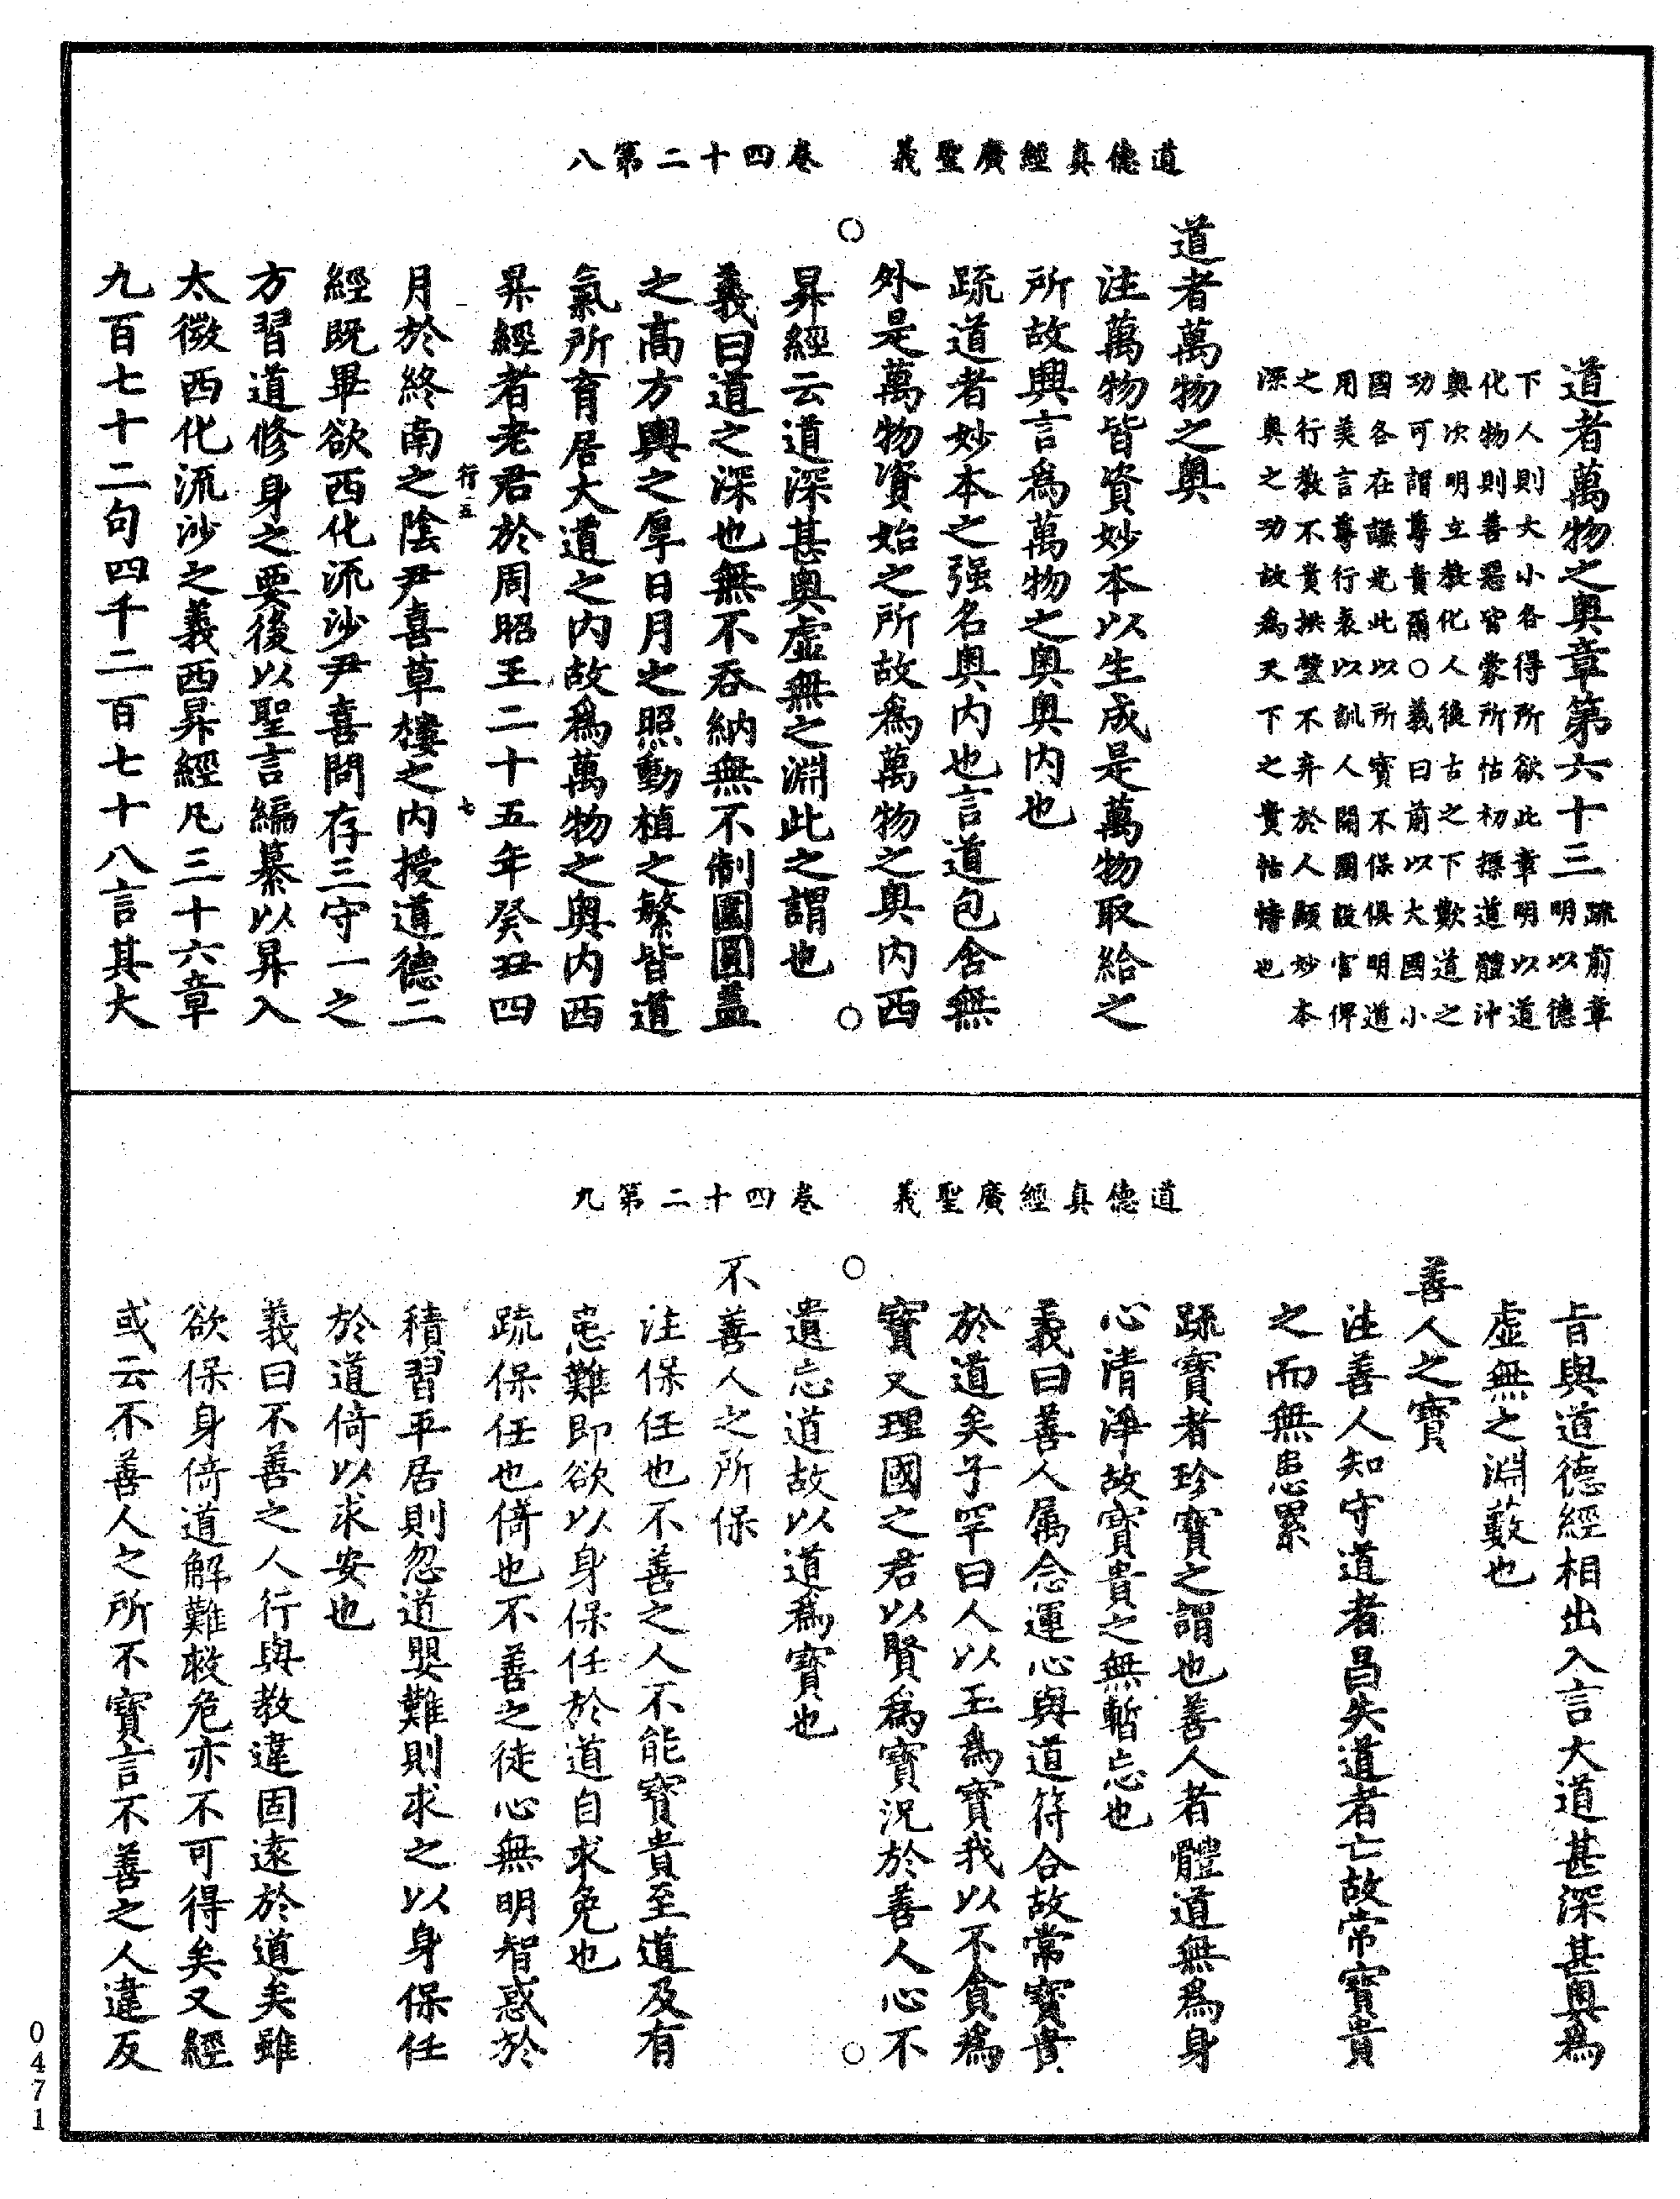 道德真經廣聖義　卷四十二第八
道者萬物之奥章第六十三
疏前章明以德
下人則大小各得所欲此章明以道
化物則善惡皆蒙所怙初標道體沖
奥次明立教化人後古之下歎道之
功可謂尊貴爾○義曰前以大國小
國各在謙光此以所寶不保俱明道
用美言尊行表以訓人開國設官俾
之行教不貴拱璧不弃於人顯妙本
深奥之功故為天下之貴怙恃也
道者萬物之奥
注萬物皆資妙本以生成是萬物取給之
所故興言為萬物之奥奥内也
疏道者妙本之强名奥内也言道包含無
外是萬物資始之所故為萬物之奥内西
昇經云道深甚奥虛無之淵此之謂也
義曰道之深也無不吞納無不制圍圓蓋
之高方輿之厚日月之照動植之繁皆道
氣所育居大道之内故為萬物之奥内西
昇經者老君於周昭王二十五年癸丑四
行五　七
月於終南之陰尹喜草樓之内授道德二
經既畢欲西化流沙尹喜問存三守一之
方習道修身之要後以聖言編纂以昇入
太微西化流沙之義西昇經凡三十六章
九百七十二句四千二百七十八言其大
道德真經廣聖義　卷四十二第九
旨與道德經相出入言大道甚深甚奥為
虛無之淵藪也
善人之寶
注善人知守道者昌失道者亡故常寶貴
之而無患累
疏寶者珍寶之謂也善人者體道無為身
心清淨故寶貴之無暫忘也
義曰善人屬念運心與道符合故常寶貴
於道矣子罕曰人以玉為寶我以不貪為
寶又理國之君以賢為寶況於善人心不
遺忘道故以道為寶也
不善人之所保
注保任也不善之人不能寶貴至道及有
患難即欲以身保任於道自求免也
疏保任也倚也不善之徒心無明智惑於
積習平居則忽道嬰難則求之以身保任
於道倚以求安也
義曰不善之人行與教違固遠於道矣雖
欲保身倚道解難救危亦不可得矣又經
或云不善人之所不寶言不善之人違反
0471